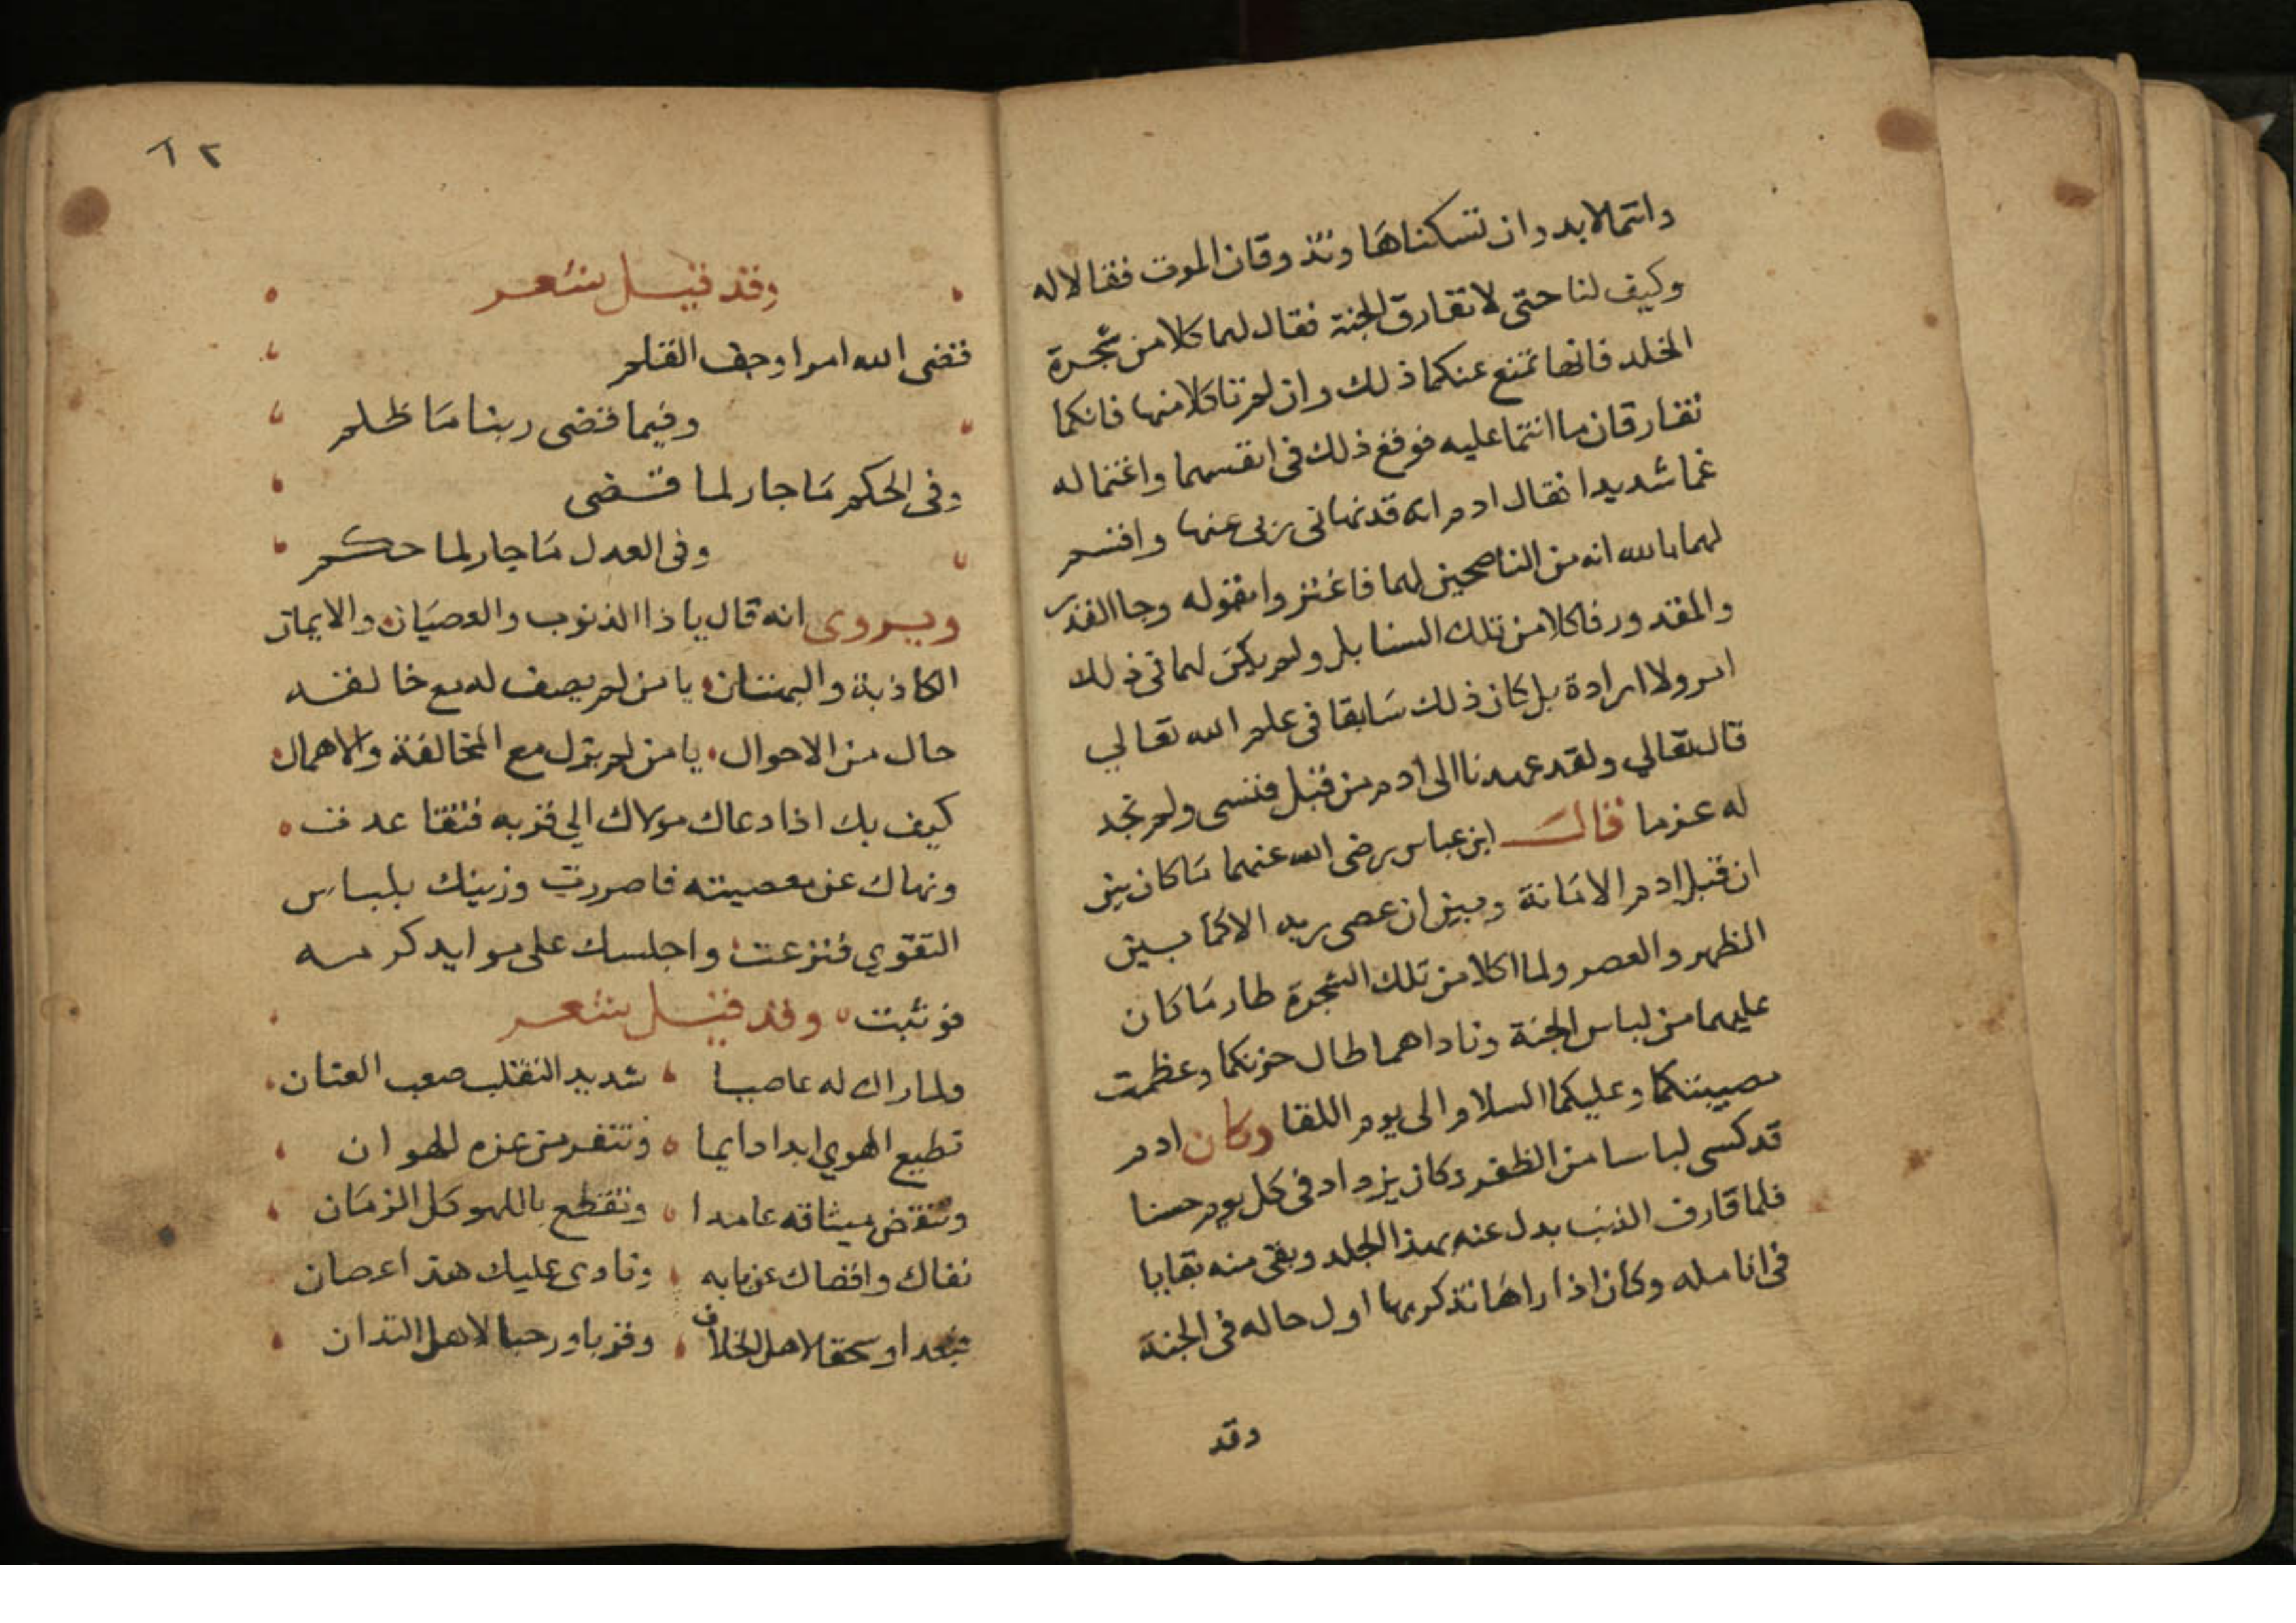 وانتما لابد وان تسكناها وتذوقان الموت فقالا له
وكيف لنا حتى لا نفارق الجنة فقال لهما كلا من شجرة
الخلد فانها تمنع عنكما ذلك وان لم تاكلا منها فانكما
تفارقان ما انتما عليه فوقع ذلك فى انفسهما واغتما له
غما شديدا فقال ادم انه قد نهانى ربى عنها واقسم
لهما بالله انه من الناصحين لهما فاغتروا بقوله وجا القدر
والمقدور فاكلا من تلك السنابل ولم يكن لهما فى ذلك
امر ولا ارادة بل كان ذلك سَابقا فى علم الله تعالي
قال تعالي ولقد عهدنا الى ادم من قبل فنسى ولم نجد
له عزما قالَ ابن عباس رضى الله عنهما مَا كان بين
ان قبل ادم الامَانة وبين ان عصى ربه الا كما بين
الظهر والعصر ولما اكلا من تلك الشجرة طار مَا كان
عليهما من لباس الجنة وناداهما طال حزنكما وعظمت
مصيبتكما وعليكما السلام الى يوم اللقا وكان ادم
قد كسى لباسا من الظفر وكان يزداد فى كل يوم حسنا
فلما قارف الذنب بدل عنه بهذا الجلد وبقى منه بقايا
فى انامله وكان اذا راهَا تذكر بها اول حاله فى الجنة
وقد
٢١
وقد قيل شعر
قضى الله امرا وجف القلم
وفيما قضى ربنا مَا ظلم
وفى الحكم مَا جار لما قضى
وفى العدل مَا جار لما حكم
ويروى انه قال يا ذا الذنوب والعصيَان والايمان
الكاذبة والبهتان يا من لم يصف له مع خالقه
حال من الاحوال يا من لم يزل مع المخالفة والاهمال
كيف بك اذا دعاك مولاك الي قربه فتقاعدت
ونهاك عن معصيته فاصررت وزينك بلباس
التقوي فنزعت واجلسك على موايد كرمه
فوثبت وقد قيل شعر
ولما راك له عاصيا شديد التقلب صعب العنان
تطيع الهوي ابدا دايما وتنفر من عزه للهوان
وتنقض ميثاقه عامدا وتقطع باللهو كل الزمَان
نفاك واقصاك عن بابه ونادى عليك هتر اعصان
فبعدا وسحقا لاهل الخلاف وقربا ورحبا لاهل التدان